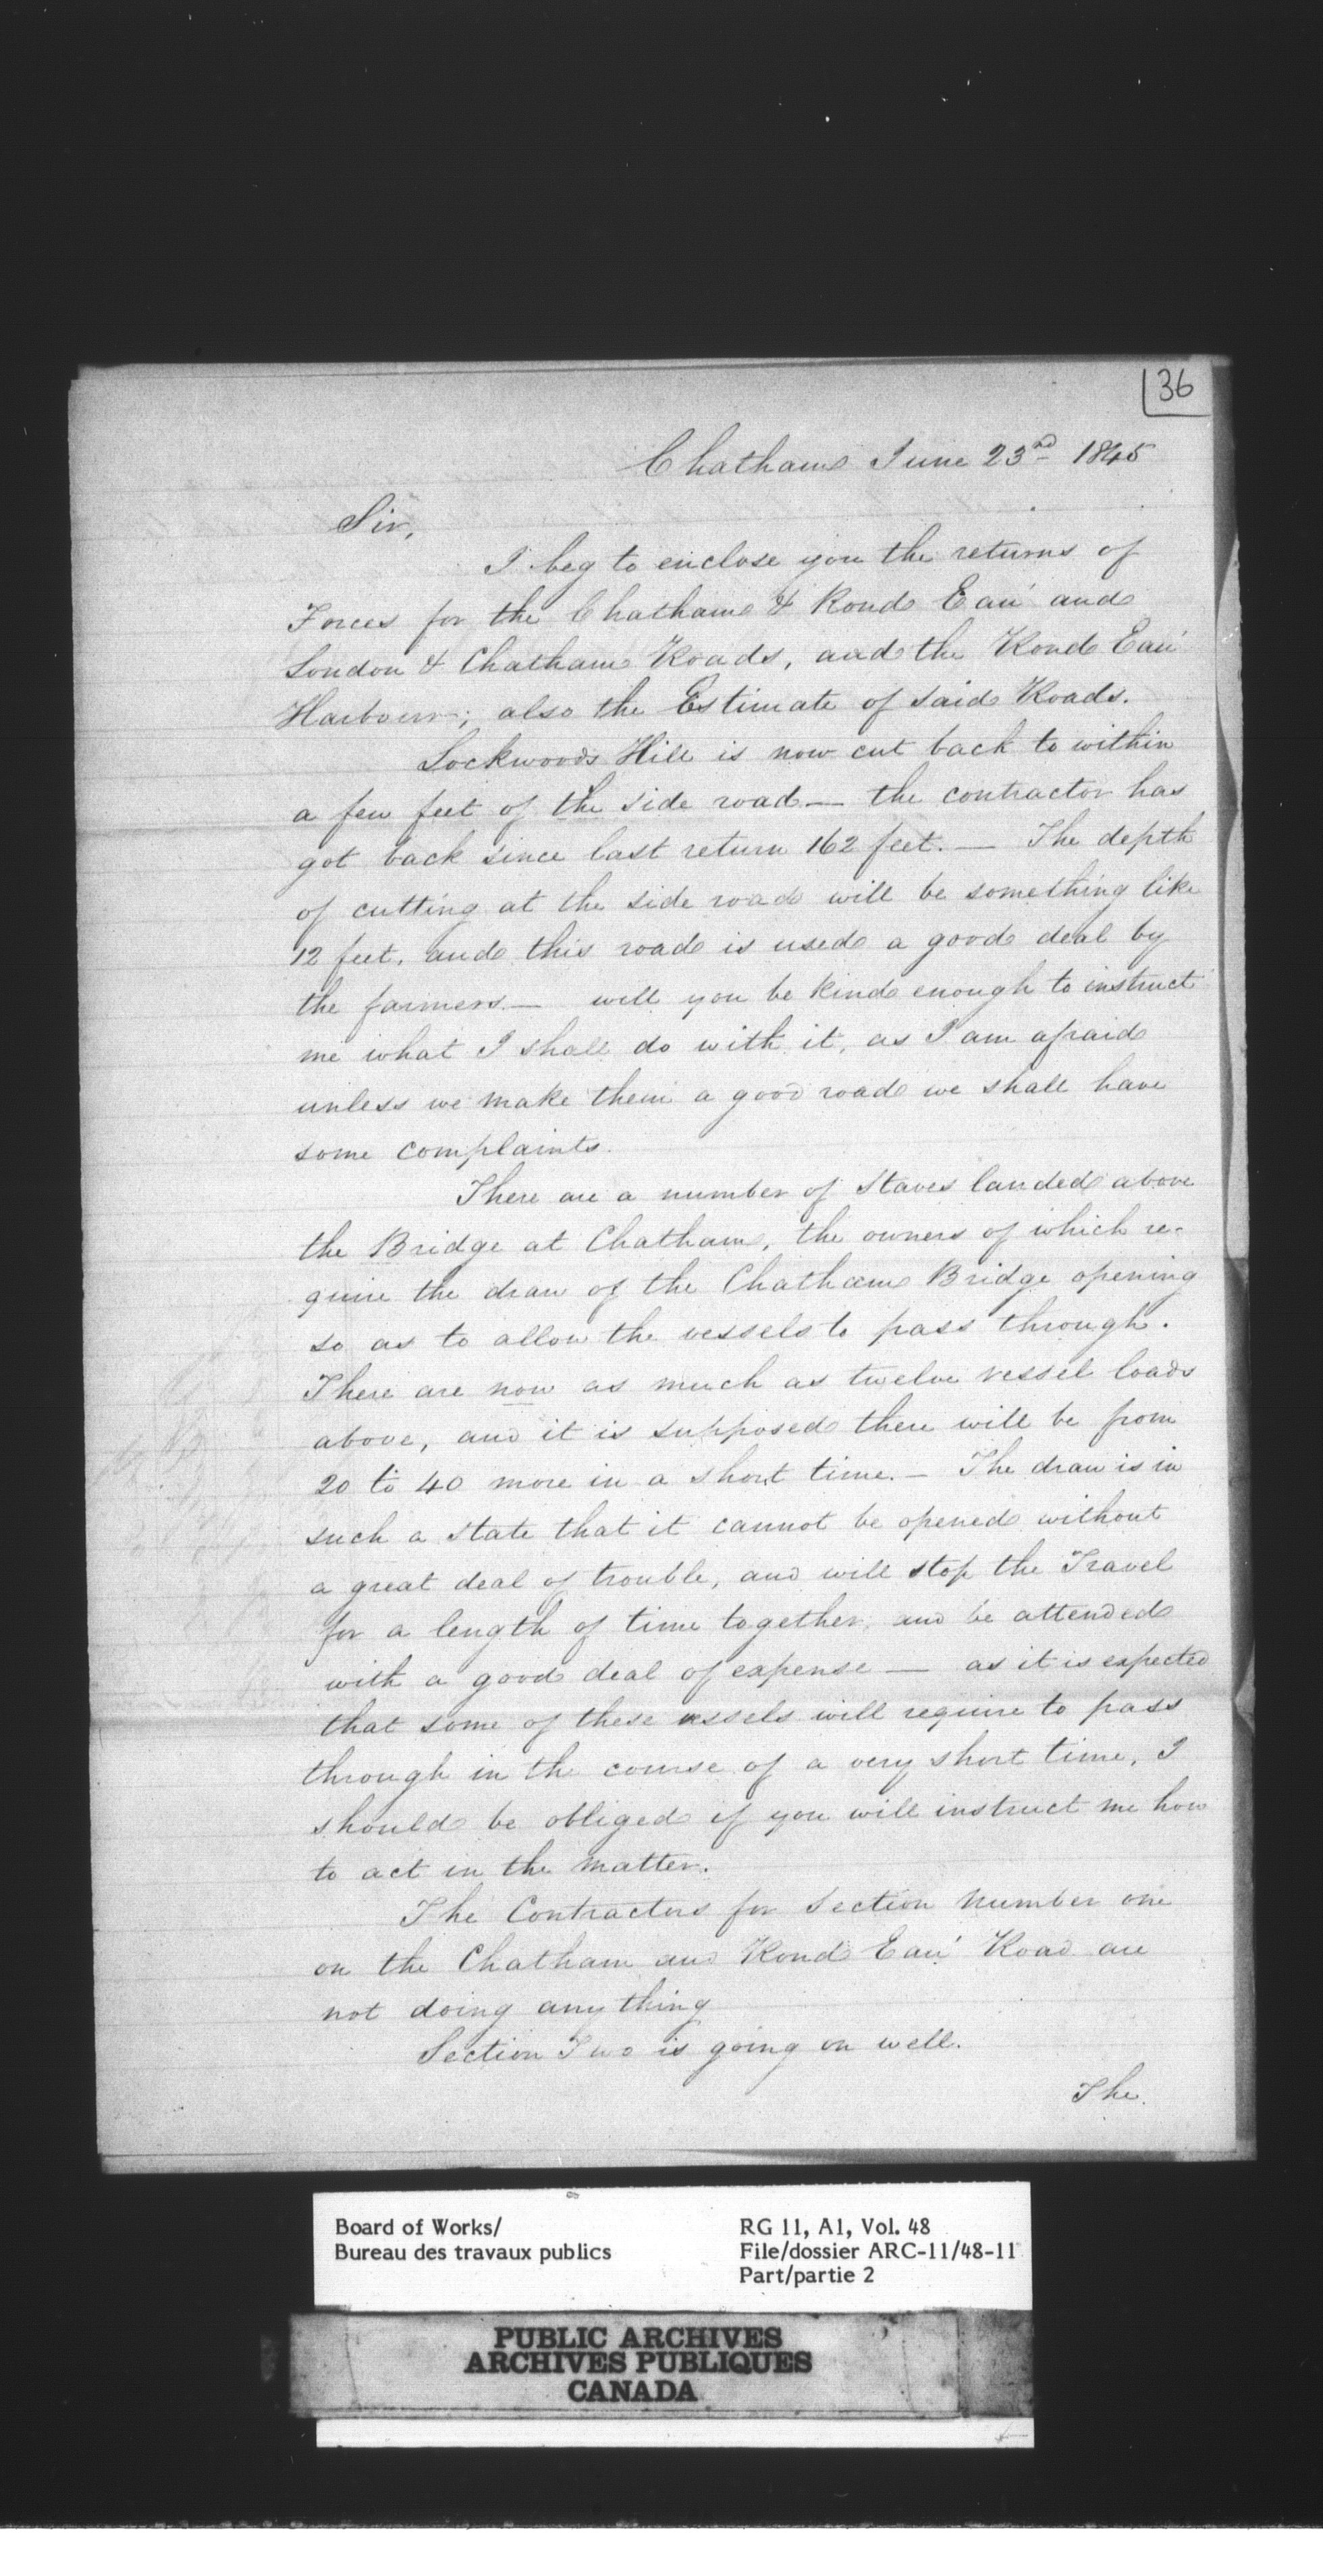 36
Chatham June 23rd 1845
Sir,
I beg to enclose you the returns of
Forces for the Chatham & Rond Eau' and
London & Chatham Roads, and the Rond Eau'
Harbour; also the Estimate of said Roads.
Lockwoods Hill is now cut back to within
a few feet of the side road — the contractor has
got back since last return 162 feet. — The depth
of cutting at the side road will be something like
12 feet, and this road is used a good deal by
the farmers — will you be kind enough to instruct
me what I shall do with it, as I am afraid
unless we make them a good road we shall have
some complaints.
There are a number of Staves landed above
the Bridge at Chatham, the owners of which re-
quire the draw of the Chatham Bridge opening
so as to allow the vessels to pass through.
There are now as much as twelve vessel loads
above, and it is supposed there will be from
20 to 40 more in a short time. — The draw is in
such a state that it cannot be opened without
a great deal of trouble, and will stop the Travel
for a length of time together, and be attended
with a good deal of expense — as it is expected
that some of these vessels will require to pass
through in the course of a very short time, I
should be obliged if you will instruct me how
to act in the matter.
The Contractors for Section Number one
on the Chatham and Rond Eau' Road are
not doing any thing
Section Two is going on well.
The
Board of Works/
Bureau des travaux publics
RG 11, A1, Vol. 48
File/dossier ARC-11/48-11
Part/partie 2
PUBLIC ARCHIVES
ARCHIVES PUBLIQUES
CANADA